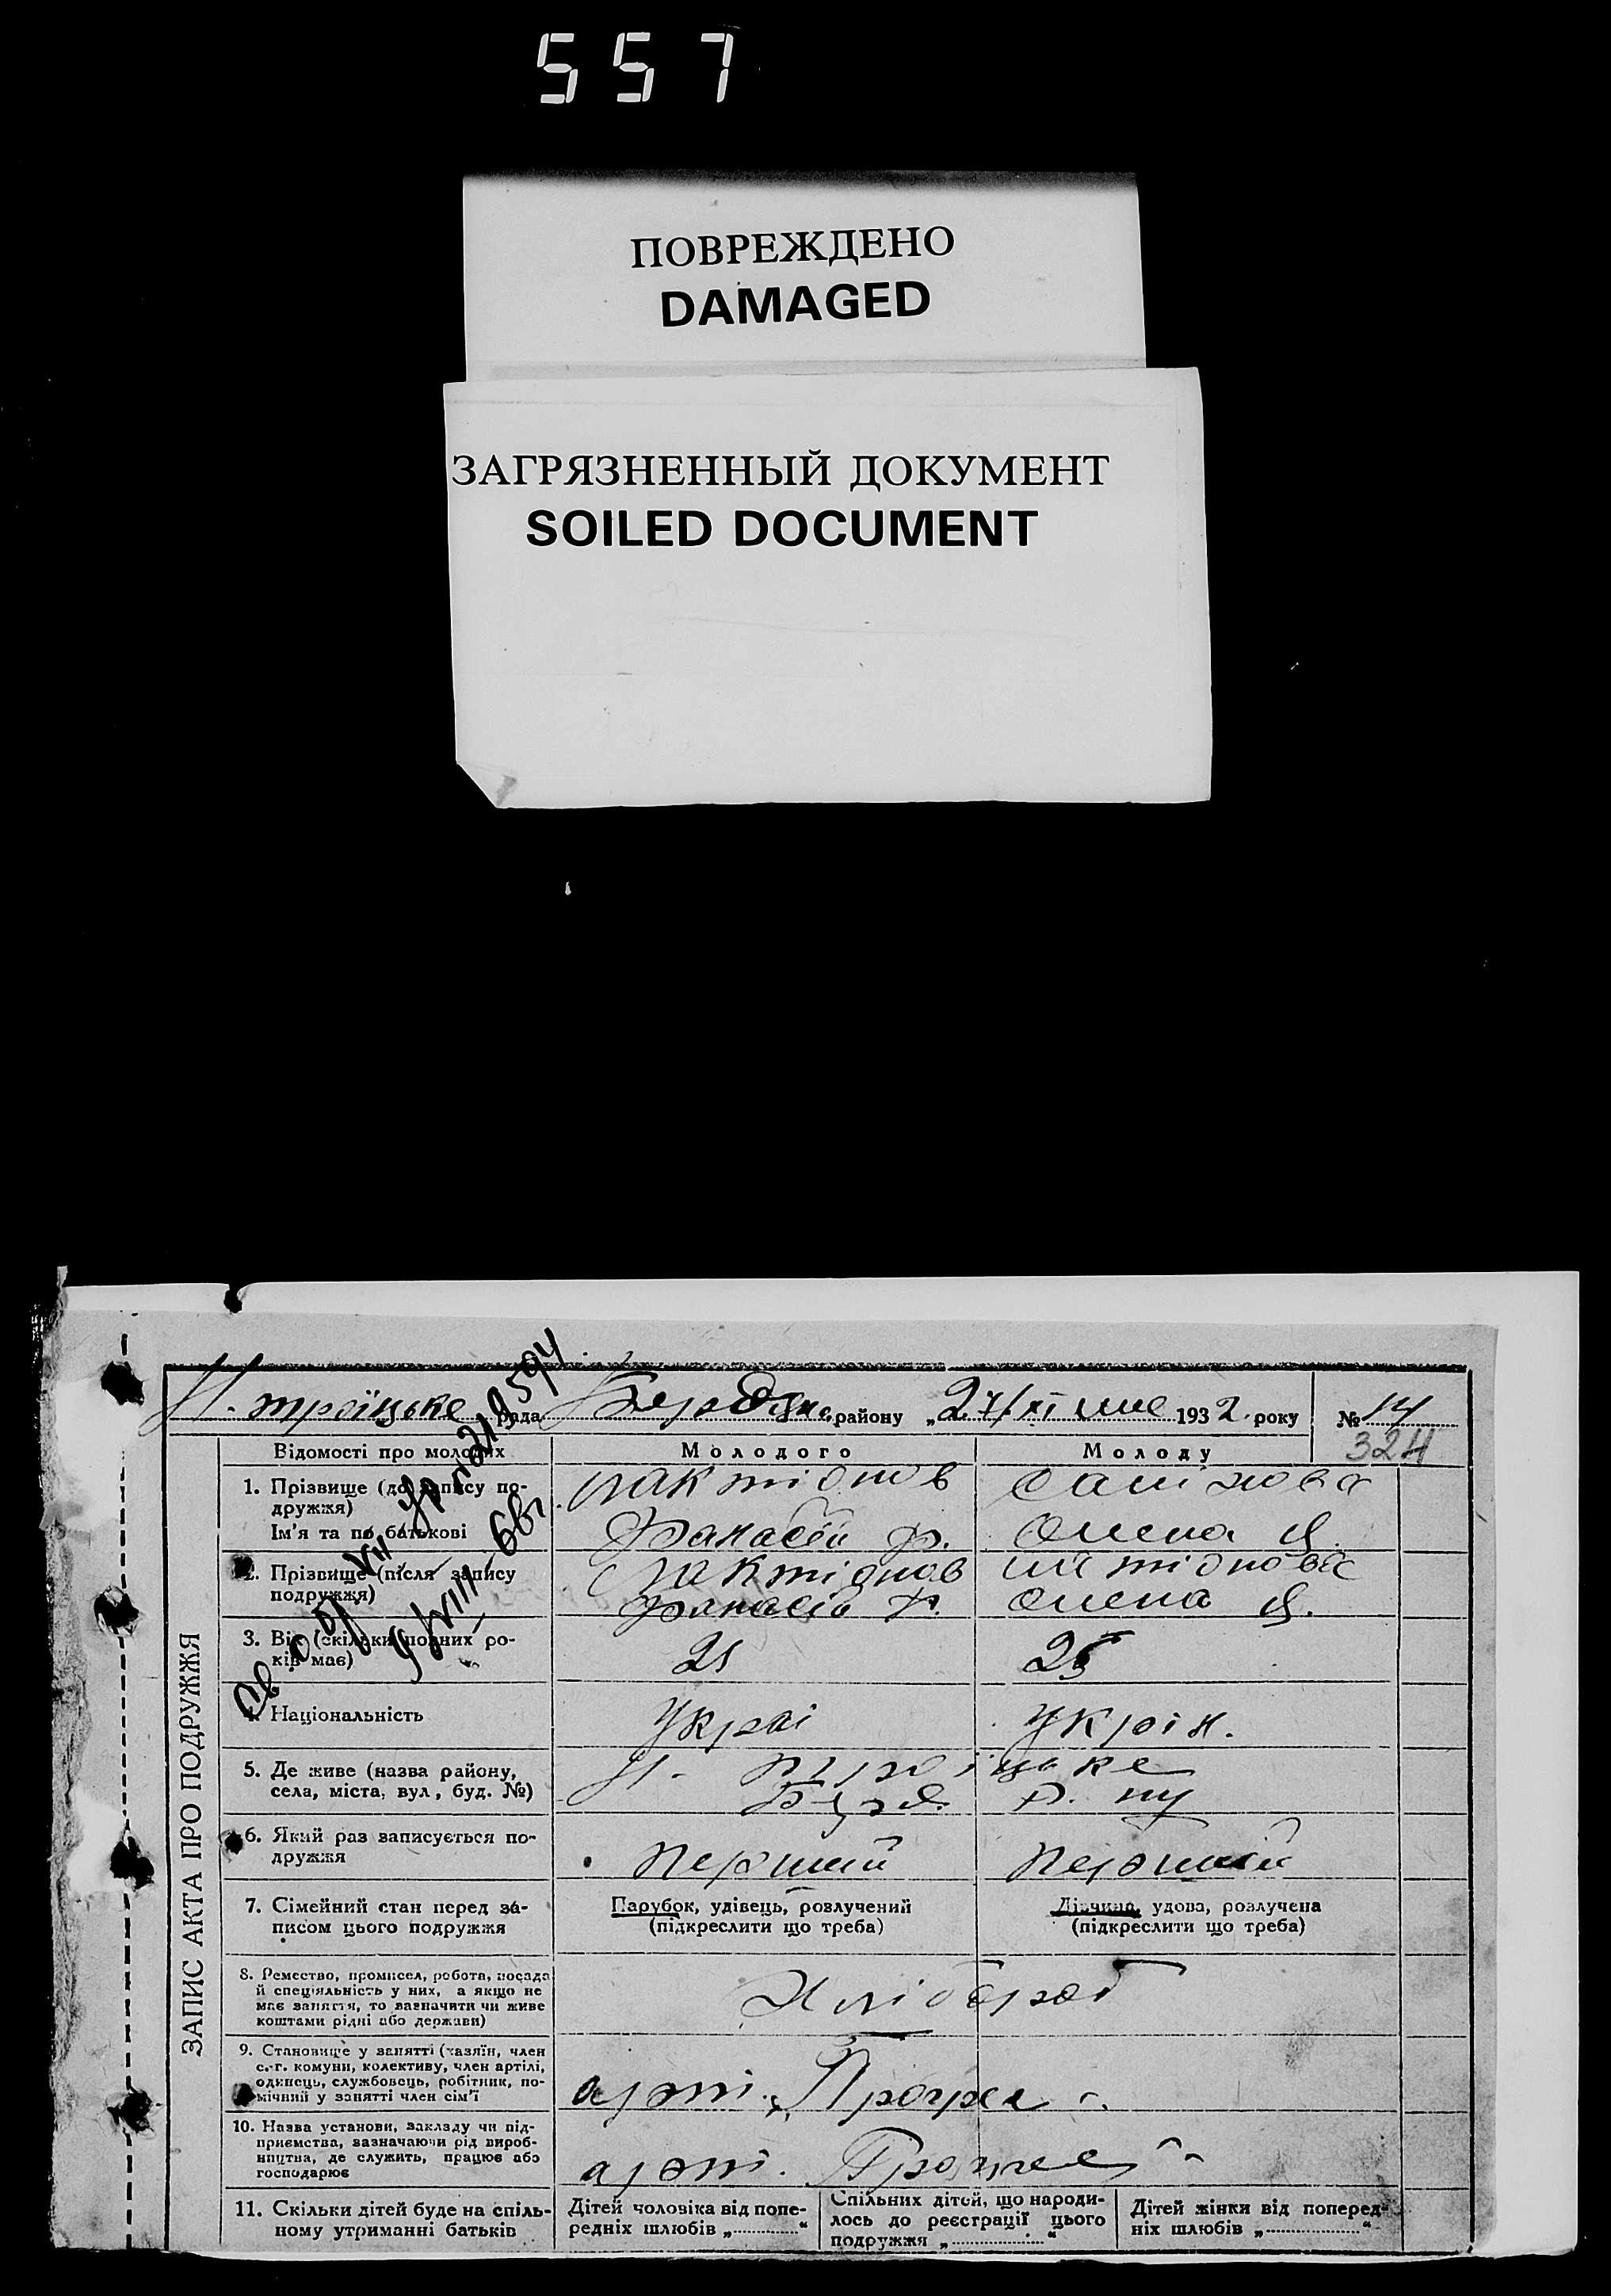 557
ПОВРЕЖДЕНО
DAMAGED
ЗАГРЯЗНЕННЫЙ ДОКУМЕНТ
SOILED DOCUMENT
Н. троїцьке рада району „27/XI 1932 року № 14
324
ЗАПИС АКТА ПРО ПОДРУЖЖЯ
Відомості про молодих
Молодого
Молоду
1. Прізвище (до запису по-
дружжя)
Ім'я та по батькові
Панасій Ф.
Олена Я.
2. Прізвище (після запису
подружжя)
Панасів Ф.
Олена Я.
3. Вік (скільки повних ро-
ків має)
21
4. Національність
Украі
Украін.
5. Де живе (назва району,
села, міста, вул, буд. №)
Н. - троїцьке
6. Який раз записується по-
дружжя
перший
перший
7. Сімейний стан перед за-
писом цього подружжя
Парубок, удівець, розлучений
(підкреслити що треба)
Дівчина, удова, розлучена
(підкреслити що треба)
8. Ремество, промисел, робота, посада
й спеціяльність у них, а якщо не
має заняття, то вазначити чи живе
коштами рідні або держави)
Хлібороб
9. Становище у занятті (хазяїн, член
с.-г. комуни, колективу, член артілі,
одинець, службовець, робітник, по-
мічний у занятті член сім'ї
арті. „Прогрес
10. Назва установи, закладу чи під-
приємства, зазначаючи рід вироб-
ництва, де служить, працює або
господарює
арті.
11. Скільки дітей буде на спіль-
ному утриманні батьків
Дітей чоловіка від попе-
редніх шлюбів „............“
Спільних дітей, що народи-
лось до реєстрації цього
подружжя „............“
Дітей жінки від поперед-
ніх шлюбів „............“